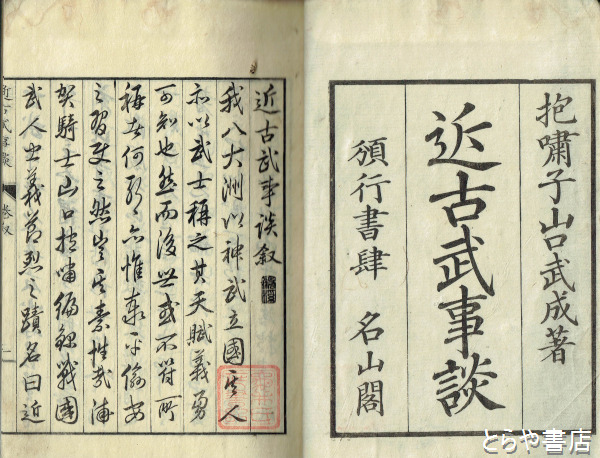 抱嘯子山口武成著
近古武事談
頒行書肆 名山閣
近古武事談叙
我八大洲以神武立國其人
亦以武士稱之其天賦義勇
可知也然而後世或不背所
稱者何耶亦惟承平偸安
之習使之然豈其素性哉浦
賀騎士山口抱嘯編録戰國
武人士義節烈之蹟名曰近
とらや書店